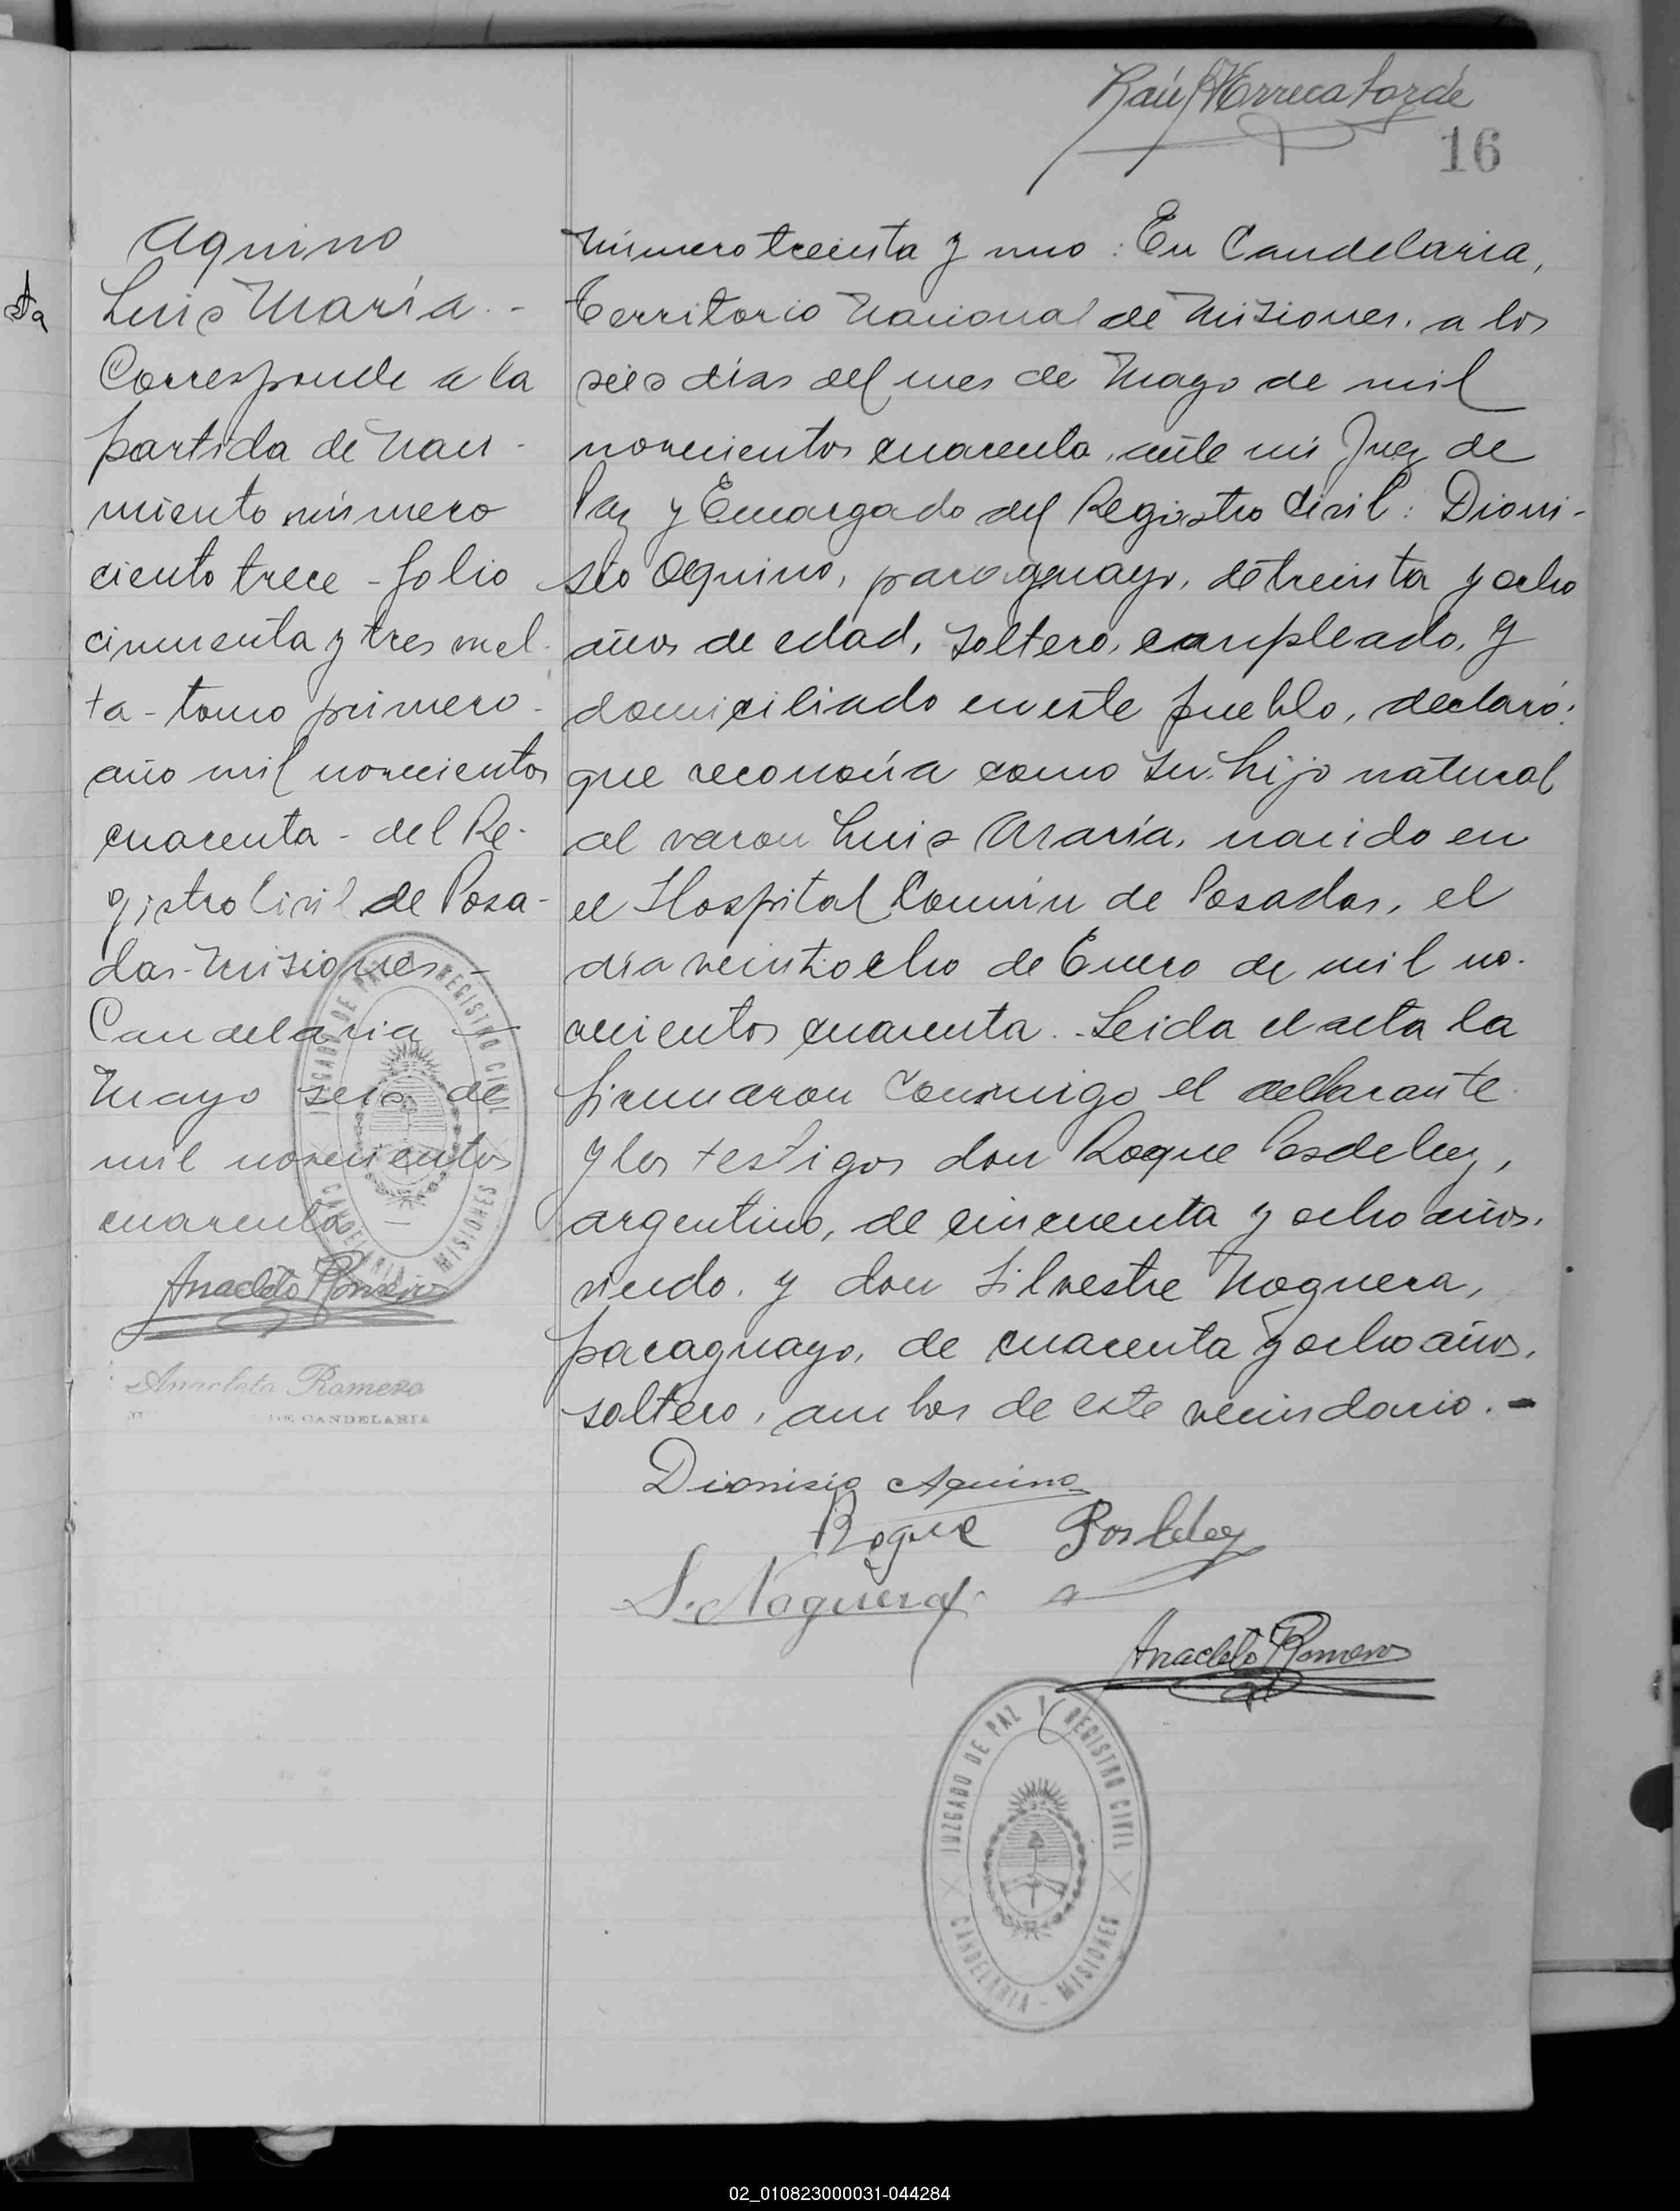 16
Aquino
Luis María.-
Corresponde a la
partida de naci-
miento número
ciento trece - folio
cincuenta y tres vuel-
ta - tomo primero -
año mil novecientos
cuarenta - del Re-
gistro Civil de Posa-
das - Misiones -
Candelaria
Mayo seis de
mil novecientos
cuarenta
Anacleto Romero
Anacleto Romero
DE CANDELARIA
JUZGADO DE PAZ Y REGISTRO CIVIL
CANDELARIA - MISIONES
Número treinta y uno: En Candelaria,
Territorio Nacional de Misiones, a los
seis días del mes de Mayo de mil
novecientos cuarenta, ante mi Juez de
Paz y Encargado del Registro Civil: Dioni-
sio Aquino, paraguayo, de treinta y ocho
años de edad, soltero, empleado, y
domiciliado en este pueblo, declaró:
que reconocía como su hijo natural
al varon Luis María, nacido en
el Hospital Común de Posadas, el
dia veintiocho de Enero de mil no-
vecientos cuarenta. - Leida el acta la
firmaron conmigo el declarante
y los testigos don Roque Posdeley,
argentino, de cincuenta y ocho años,
viudo, y don Silvestre Noguera,
paraguayo, de cuarenta y ocho años,
soltero, ambos de este vecindario. -
Dionisio Aquino
Roque Posdeley
S. Noguera
Anacleto Romero
JUZGADO DE PAZ Y REGISTRO CIVIL
CANDELARIA - MISIONES
02_010823000031-044284